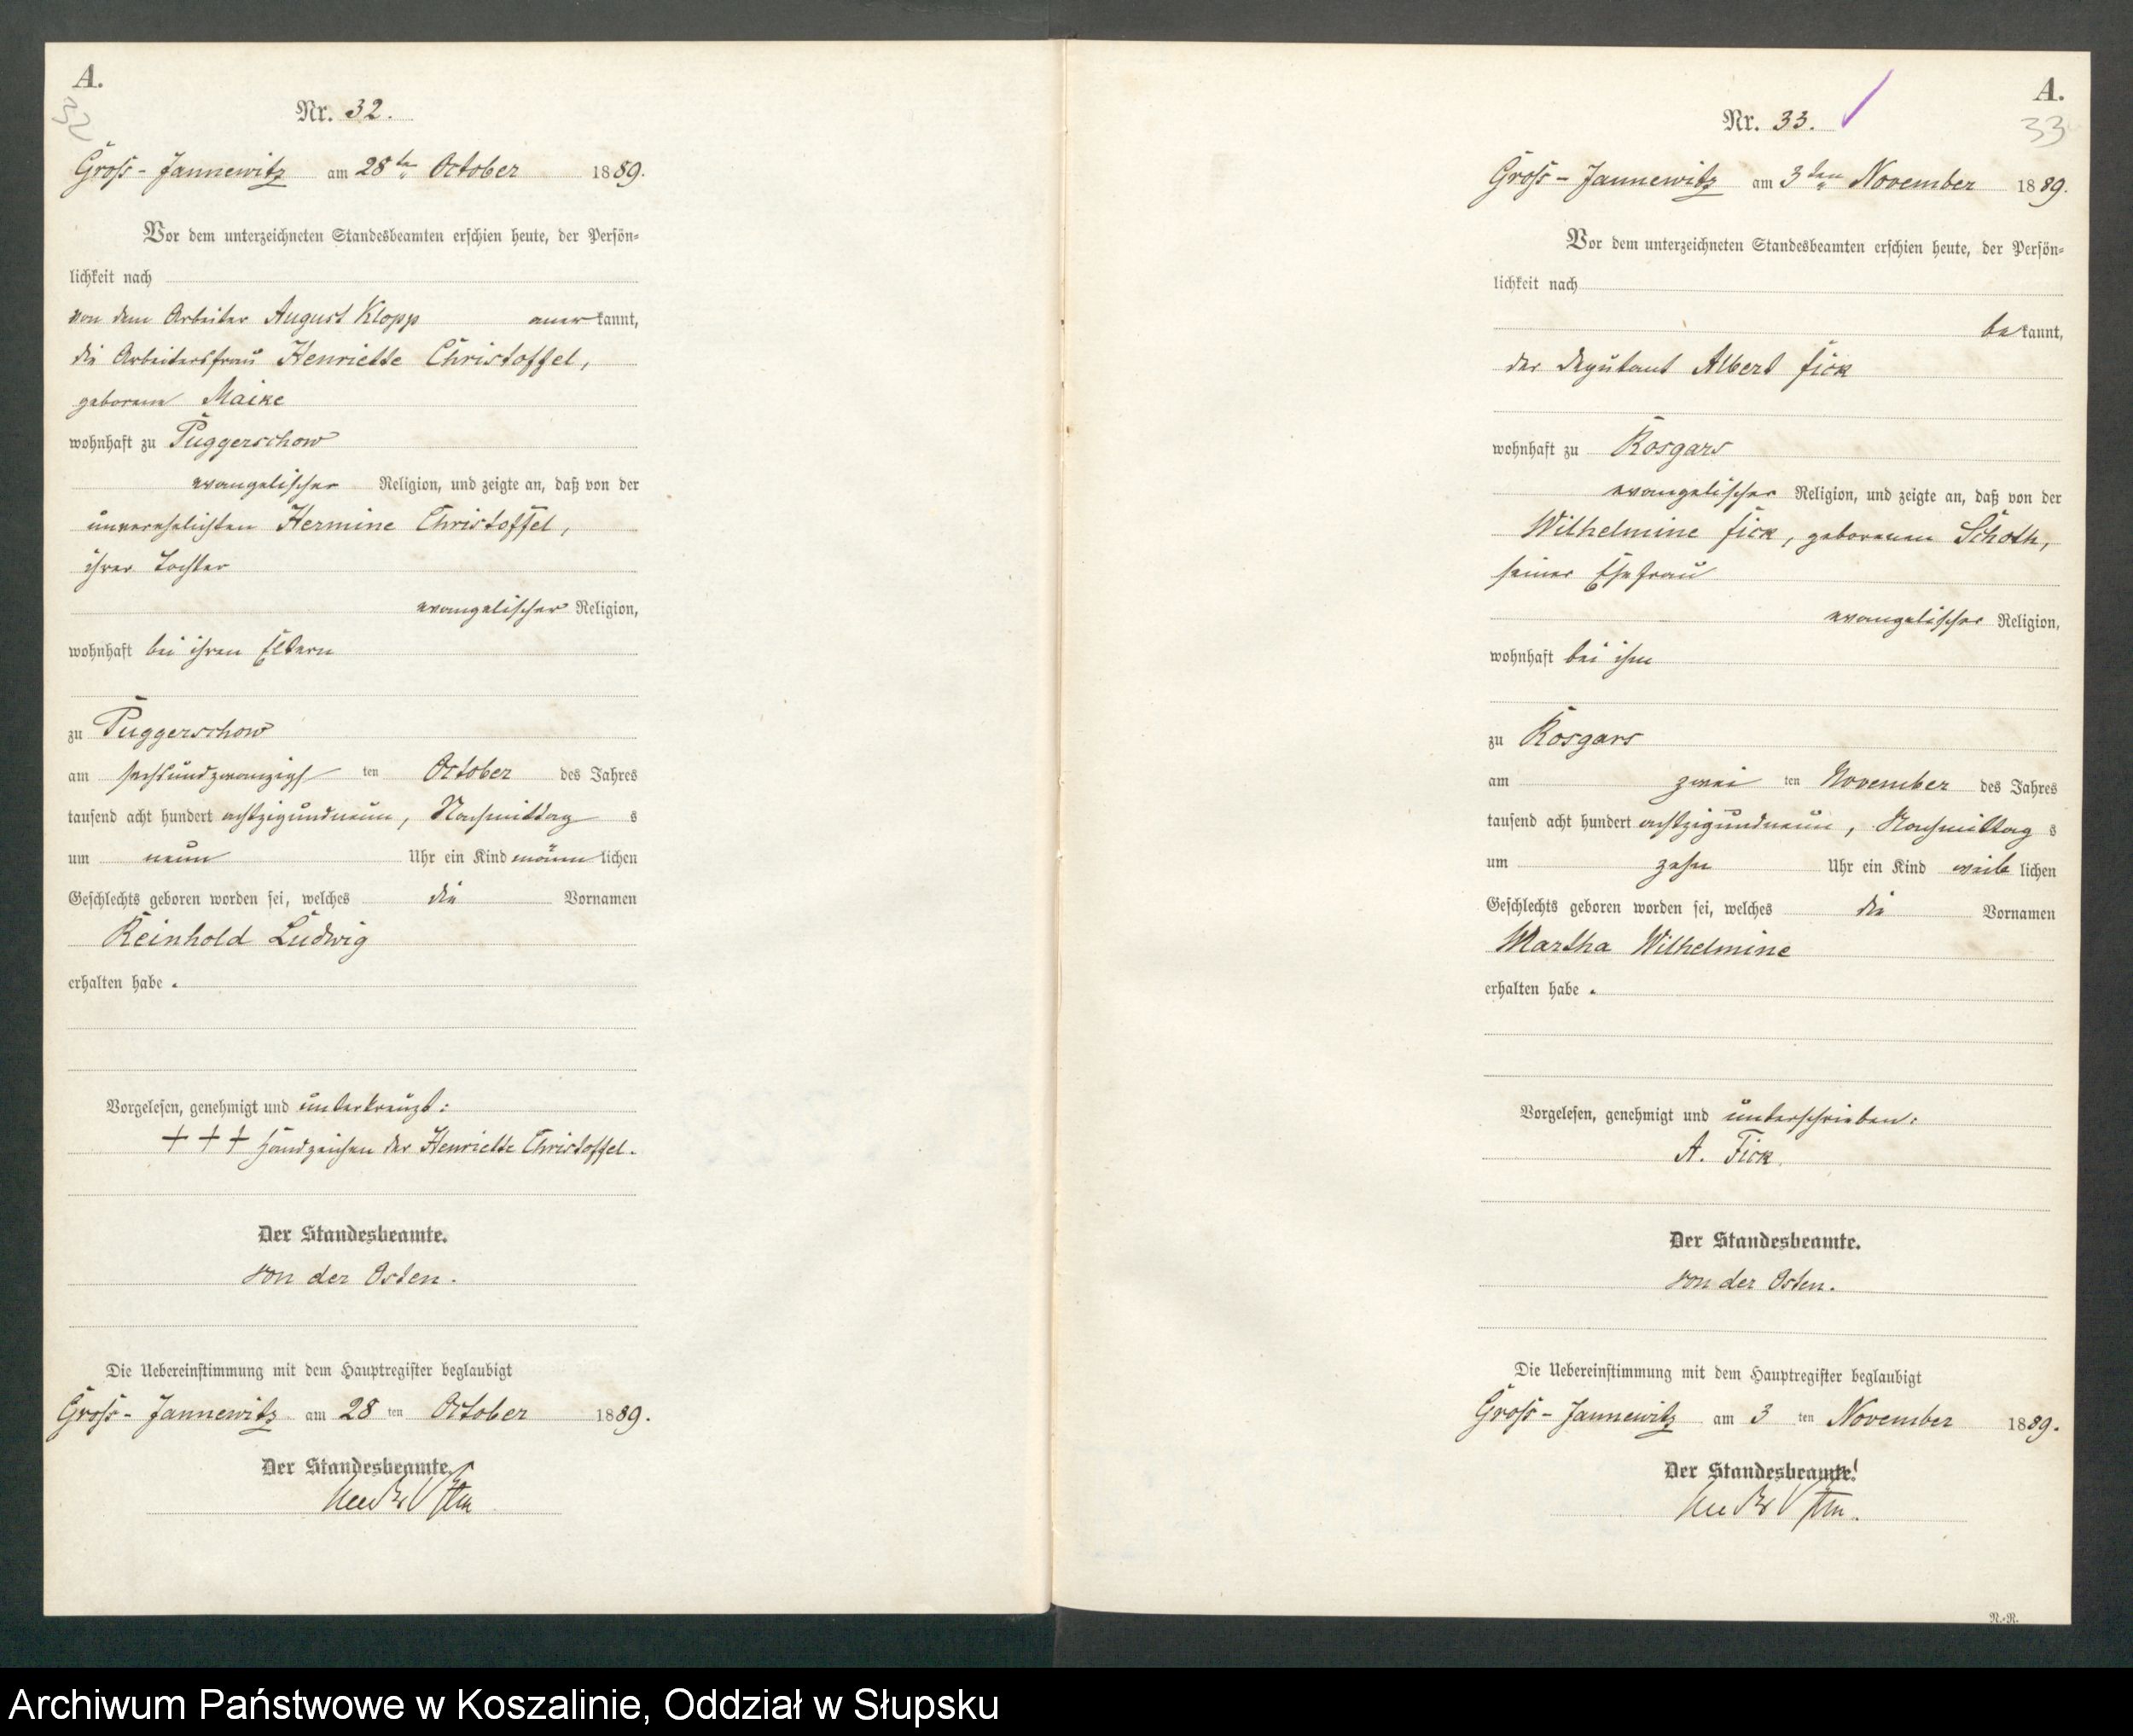 A.
32
Nr. 32.
Groß-Jannewitz am 28ten October 1889.
Vor dem unterzeichneten Standesbeamten erschien heute, der Persön-
lichkeit nach
von dem Arbeiter August Klopp anerkannt,
die Arbeitersfrau Henriette Christoffel,
geborene Maike
wohnhaft zu Puggerschow
evangelischer Religion, und zeigte an, daß von der
unverehelichten Hermine Christoffel,
ihrer Tochter
evangelischer Religion,
wohnhaft bei ihren Eltern
zu Puggerschow
am sechsundzwanzigsten October des Jahres
tausend acht hundert achtzigundneun, Nachmittags
um neun Uhr ein Kind männlichen
Geschlechts geboren worden sei, welches die Vornamen
Reinhold Ludwig
erhalten habe.
Vorgelesen, genehmigt und unterkreuzt:
+++ Handzeichen der Henriette Christoffel.
Der Standesbeamte.
von der Osten.
Die Uebereinstimmung mit dem Hauptregister beglaubigt
Groß-Jannewitz am 28ten October 1889.
Der Standesbeamte.
A.
33
Nr. 33.
Groß-Jannewitz am 3ten November 1889.
Vor dem unterzeichneten Standesbeamten erschien heute, der Persön-
lichkeit nach
bekannt,
der Deputant Albert Fick
wohnhaft zu Rosgars
evangelischer Religion, und zeigte an, daß von der
Wilhelmine Fick, geborenen Schoth,
seiner Ehefrau
evangelischer Religion,
wohnhaft bei ihm
zu Rosgars
am zweiten November des Jahres
tausend acht hundert achtzigundneun, Nachmittags
um zehn Uhr ein Kind weiblichen
Geschlechts geboren worden sei, welches die Vornamen
Martha Wilhelmine
erhalten habe.
Vorgelesen, genehmigt und unterschrieben:
A. Fick.
Der Standesbeamte.
von der Osten.
Die Uebereinstimmung mit dem Hauptregister beglaubigt
Groß-Jannewitz am 3ten November 1889.
Der Standesbeamte.
N.-R.
Archiwum Państwowe w Koszalinie, Oddział w Słupsku